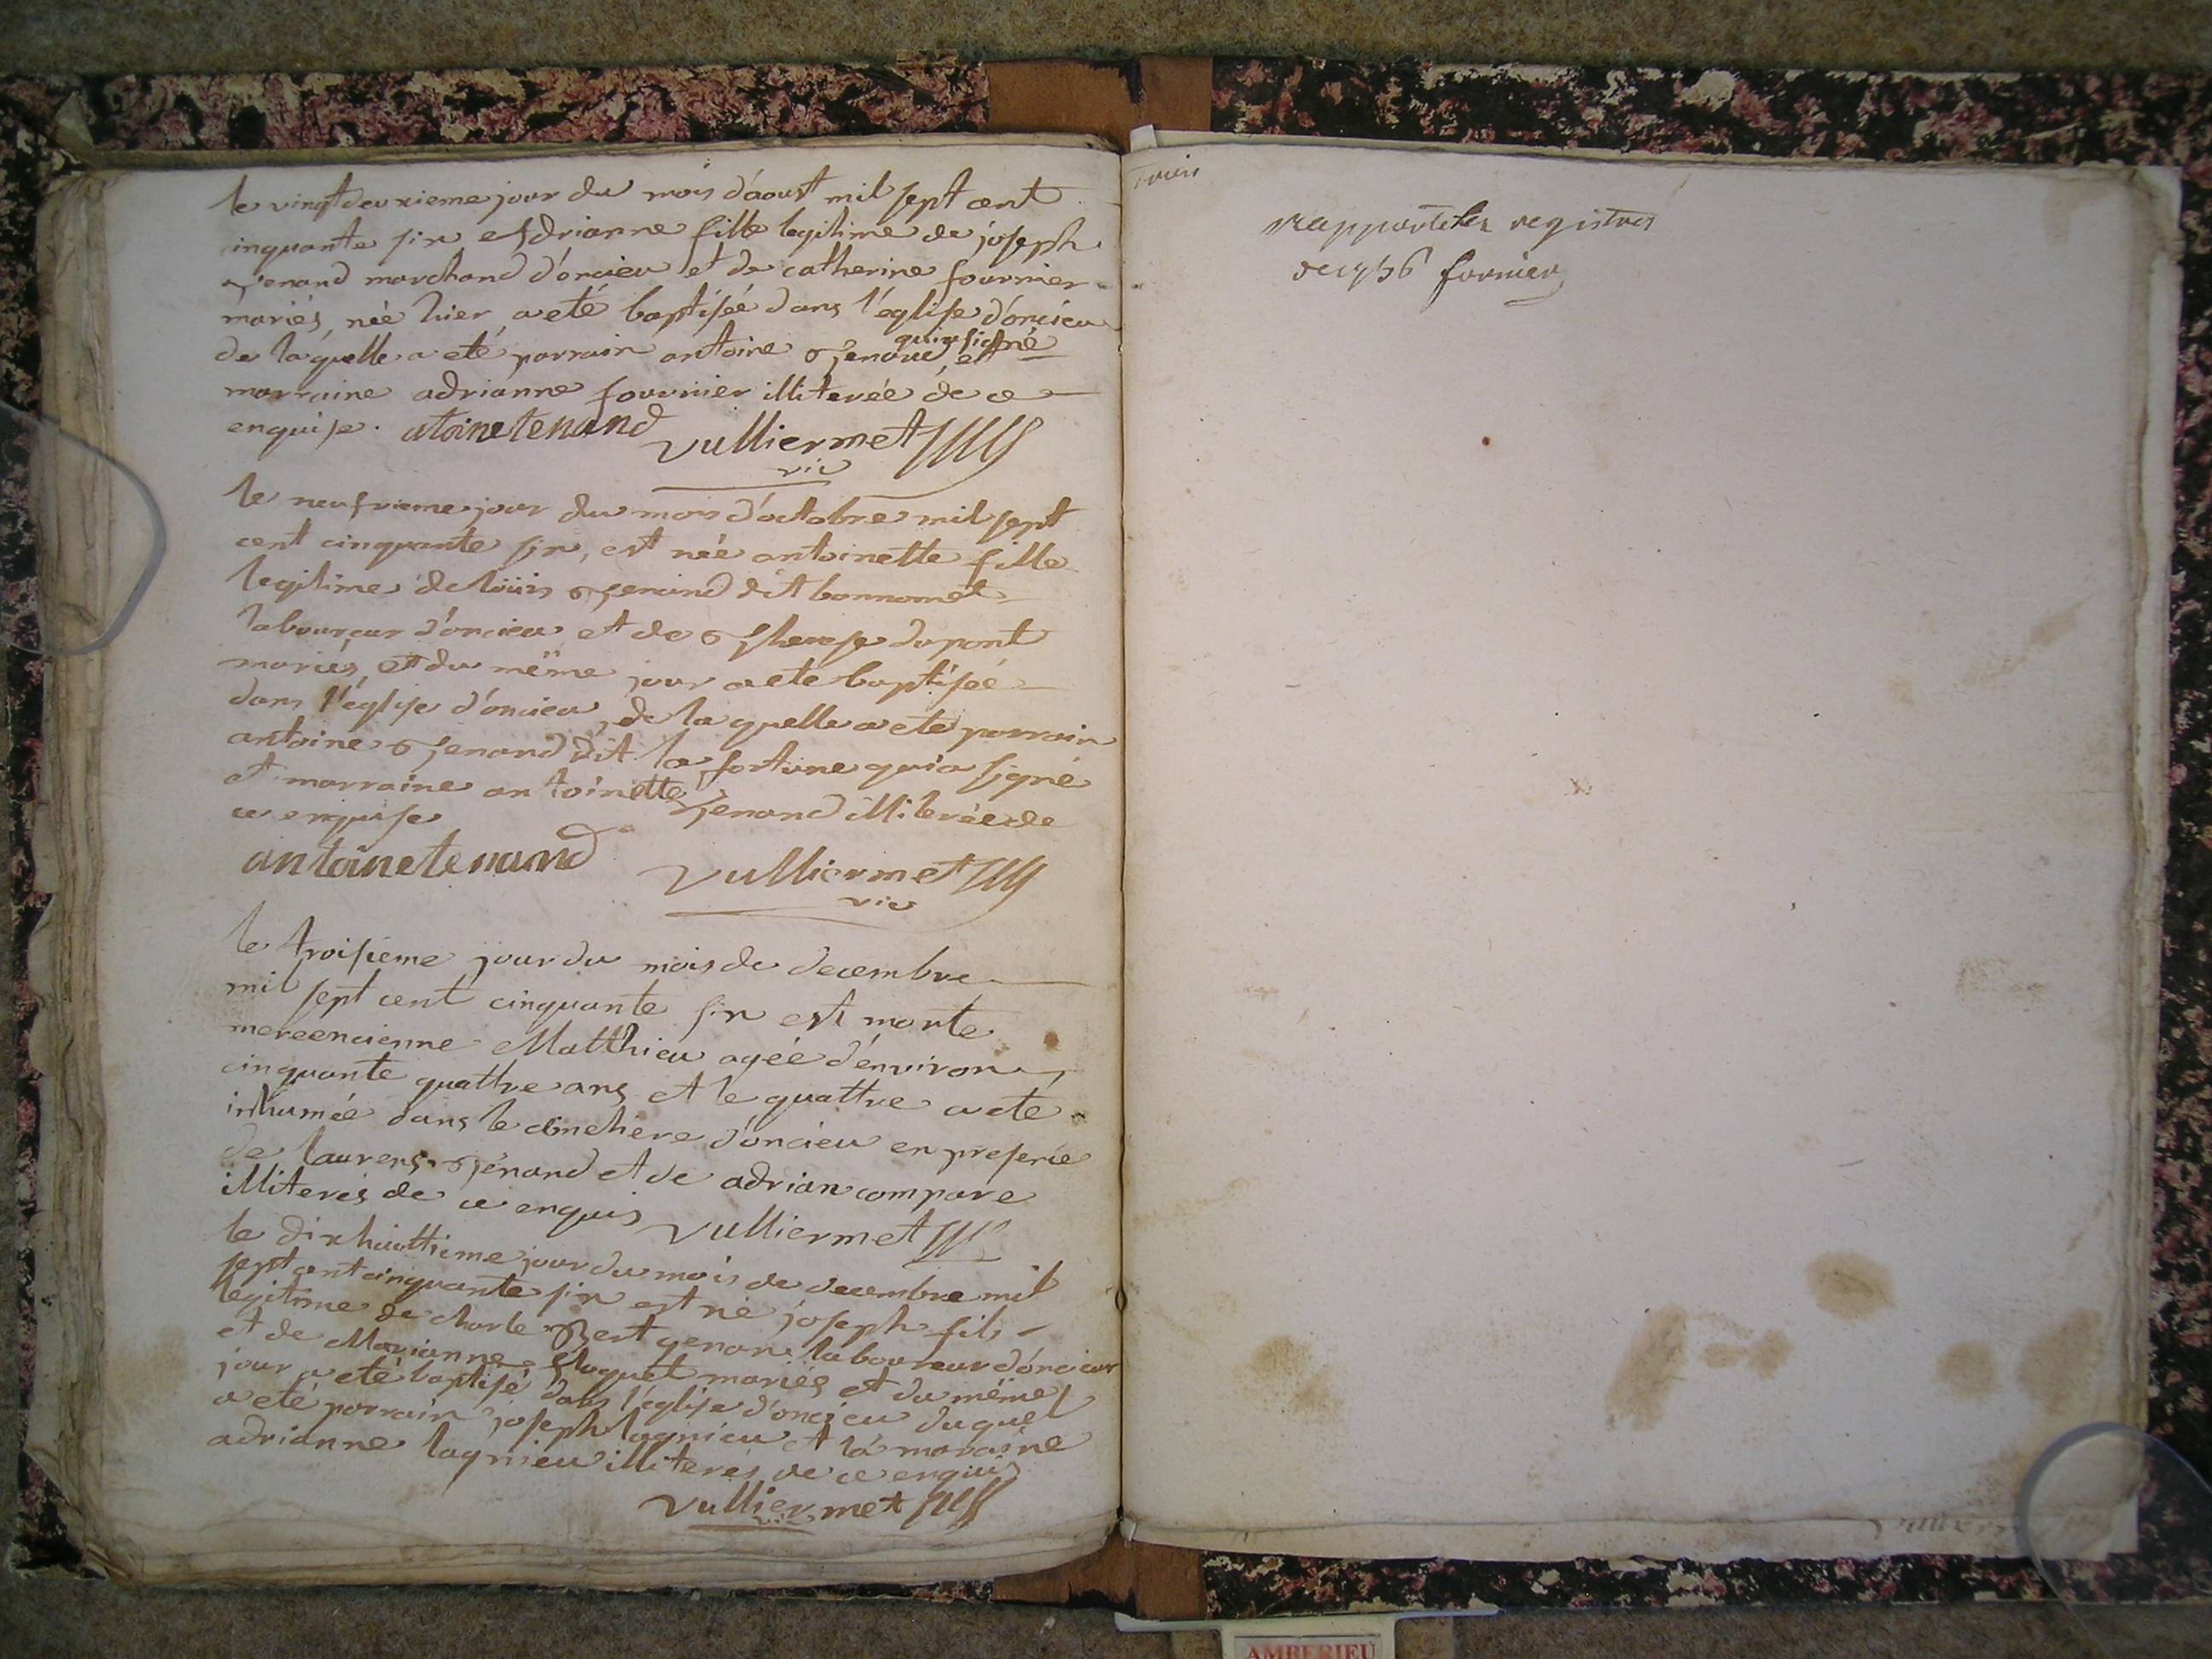 le vingt deuxieme jour du mois d'aoust mil sept cent
cinquante six Adrianne fille legitime de joseph
Tenand marchand d'oncieu et de catherine fournier
mariés, née hier a eté baptisée dans l'église d'oncieu
de laquelle a eté parrain antoine Tenand qui a signé et
marraine adrianne fournier illiterée de ce
enquise. atoine tenand
vulliermet
vic
le neufvieme jour du mois d'octobre mil sept
cent cinquante six, est née antoinette fille
legitime de loüis Tenand dit bonnomet
laboureur d'oncieu et de Therese dupont
mariés, et du même jour a eté baptisée
dans l'église d'oncieu, de la quelle a eté parrain
antoine Tenand dit la fortune qui a signé
et marraine antoinette Tenand illiterée de
ce enquise
antoine tenand vulliermet
vic
le troisieme jour du mois de decembre
mil sept cent cinquante six est morte
mereencienne Matthieu agée d'environ
cinquante quattre ans et le quattre a eté
inhumée dans le cimetiere d'oncieu en presence
de laurens Tenand et de adrian compare
illiterés de ce enquis vulliermet
le dix huittieme jour du mois de decembre mil
sept cent cinquante six est né joseph fils
legitime de charle Bert genan laboureur d'oncieu
et de Marianne mariés et du même
jour a eté baptisé dans l'église d'oncieu duquel
a eté parrain joseph lagnieu et la maraine
adrianne lagnieu illiterés de ce enquis
vulliermet
vic
rapporté les registres
de 1756 fornier
AMBERIEU